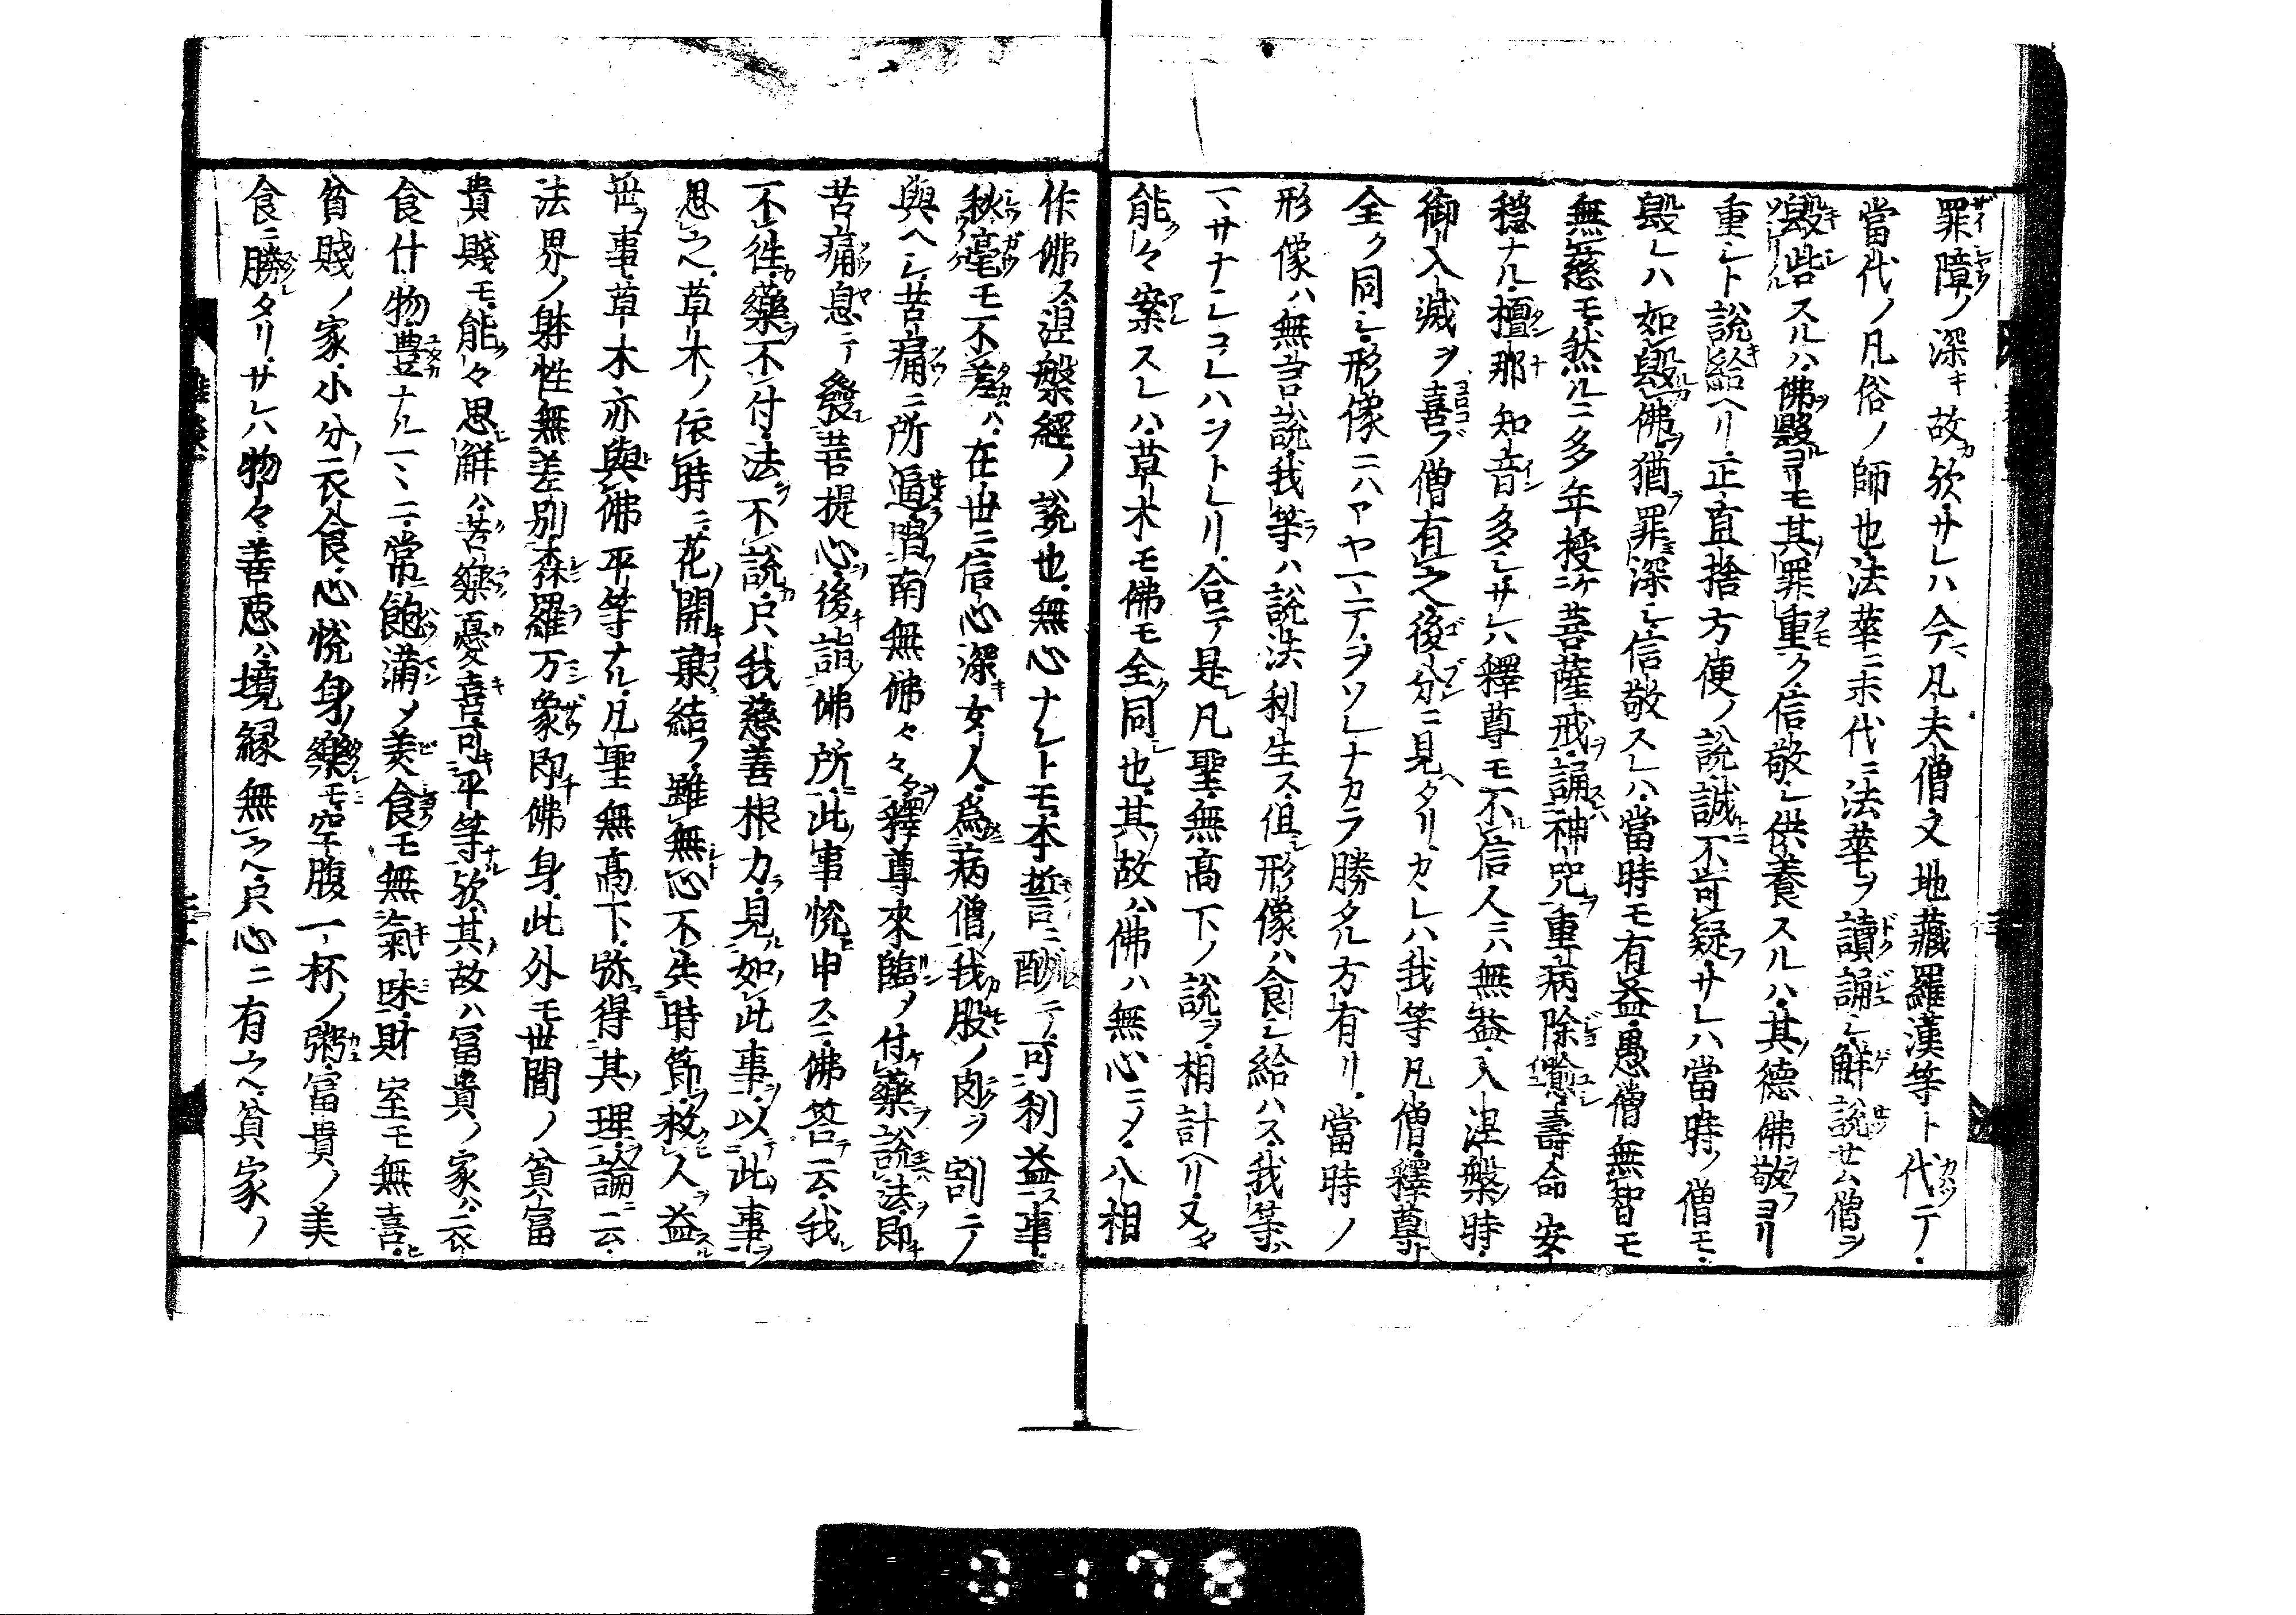 罪障ノ深キ故歟サレハ今凡夫僧又地藏羅漢等ト代テ
當代ノ凡俗ノ師也法華ニ末代ニ法華ヲ讀誦シ解說セム僧ヲ
毀呰スルハ佛毀ヨリモ其罪重ク信敬シ供養スルハ其德佛敬ヨリ
重シト說給ヘリ正直捨方便ノ說誠不可疑サレハ當時ノ僧モ
毀レハ如毀佛猶罪深シ信敬スレハ當時モ有益愚僧無智モ
無慈モ然ルニ多年授ケ菩薩戒誦神咒重病除愈壽命安
穩ナル檀那知音多シサレハ釋尊モ不信人ニハ無益入涅槃時
御入滅ヲ喜ブ僧有之後分ニ見タリカレハ我等凡僧釋尊ト
全ク同シ形像ニハアヤマテヲソレナカラ勝タル方有リ當時ノ
形像ハ無言說我等ハ說法利生ス但形像ハ食シ給ハス我等ハ
マサナシコレハヲトレリ合テ是凡聖無高下ノ說ヲ相計ヘリ又
能々案スレハ草木モ佛モ全同也其故ハ佛ハ無心ニメ八相
作佛ス涅槃經ノ說也無心ナレトモ本誓ニ酬テ可利益事
秋毫モ不差ハ在世ニ信心深女人爲病僧我股ノ肉ヲ割テ
與ヘシ苦痛ニ所逼唱南無佛々々釋尊來臨メ付藥說法即
苦痛息テ發菩提心後詣佛所此事悅申スニ佛答云我
不往藥不付法不說只我慈善根力見如此事以此事
思之草木ノ依時ニ花開菓結フ雖無心不失時節救人益
世事草木亦與佛平等ナル凡聖無高下弥得其理論云
法界ノ躰性無差別森羅万象即佛身此外モ世間ノ貧富
貴賤モ能々思解ハ苦樂憂喜可平等歟其故ハ冨貴ノ家ハ衣
食什物豊ナルマヽニ常飽滿メ美食モ無氣味財室モ無喜
貧賤ノ家小分衣食心悅身樂モ空腹一杯ノ粥富貴ノ美
食ニ勝タリサレハ物々善悪ハ境緣無之只心ニ有之貧家ノ
3178